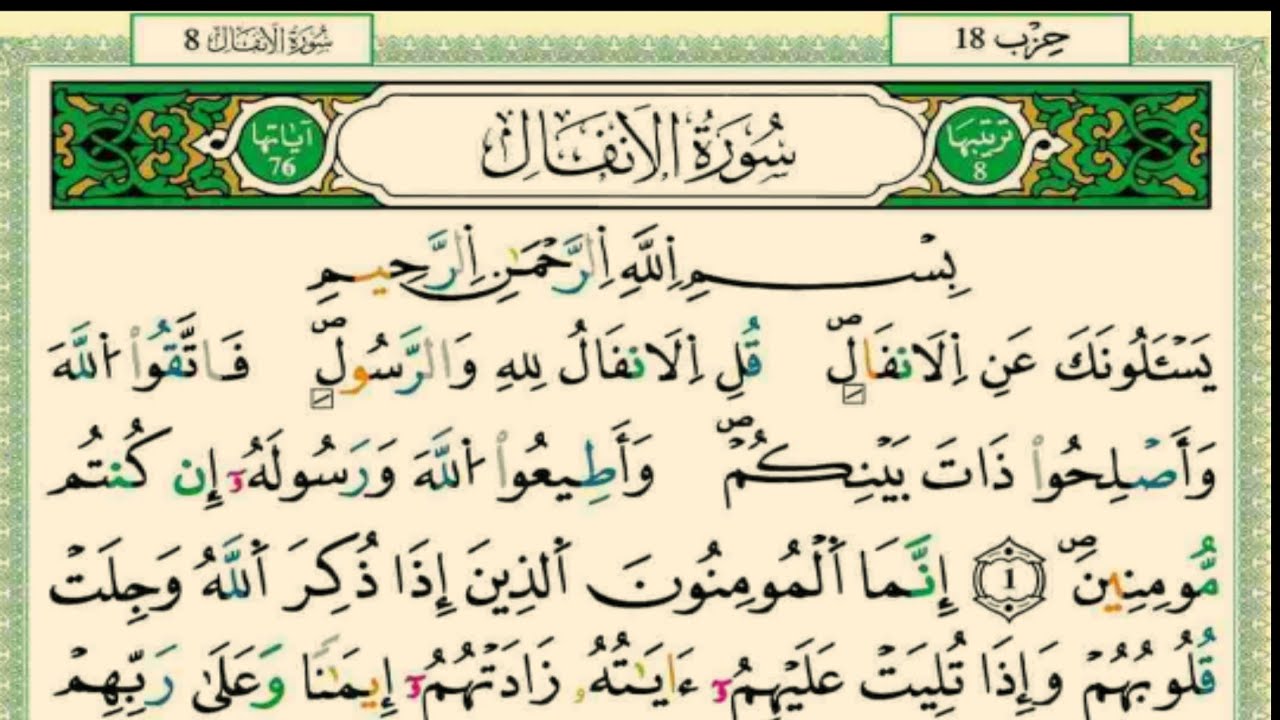 حِزْب 18
سُورَةُ الَانفَالِ 8
تَرتِيبُهَا 8
سُورَةُ الَانفَالِ
آيَاتُهَا 76
بِسْمِ اِللَّهِ اِلرَّحْمَٰنِ اِلرَّحِيمِ
يَسْـَٔلُونَكَ عَنِ اِلَانفَالِۖ قُلِ اِلَانفَالُ لِلهِ وَالرَّسُولِۖ فَاتَّقُواْ اللَّهَ
وَأَصْلِحُواْ ذَاتَ بَيْنِكُمْۖ وَأَطِيعُواْ اللَّهَ وَرَسُولَهُۥٓ إِن كُنتُم
مُّومِنِينَۖ 1 إِنَّمَا اَلْمُومِنُونَ اَلذِينَ إِذَا ذُكِرَ اَللَّهُ وَجِلَتْ
قُلُوبُهُمْ وَإِذَا تُلِيَتْ عَلَيْهِمُۥٓ ءَايَٰتُهُۥ زَادَتْهُمُۥٓ إِيمَٰناً وَعَلَىٰ رَبِّهِمْ